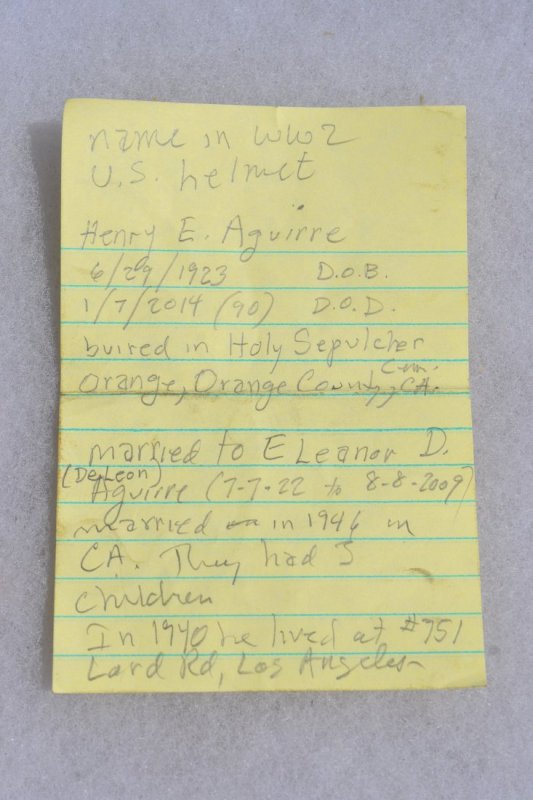 name in WW2
U.S. helmet
Henry E. Aguirre
6/29/1923 D.O.B.
1/7/2014 (90) D.O.D.
buired in Holy Sepulcher
Cem.
Orange, Orange County, CA.
married to ELeanor D.
(DeLeon)
Aguirre (7-7-22 to 8-8-2009)
married in 1946 in
CA. They had 3
children
In 1940 he lived at #751
Lord Rd, Los Angeles